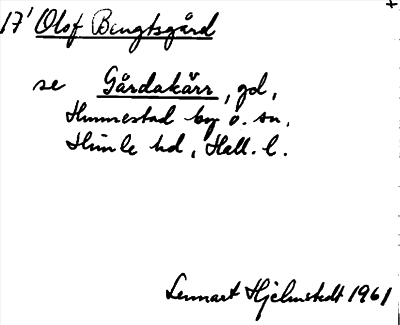 17¹ Olof Bengtsgård
se Gårdakärr, gd,
Hunnestad by o. sn,
Himle hd, Hall. l.
Lennart Hjelmstedt 1961